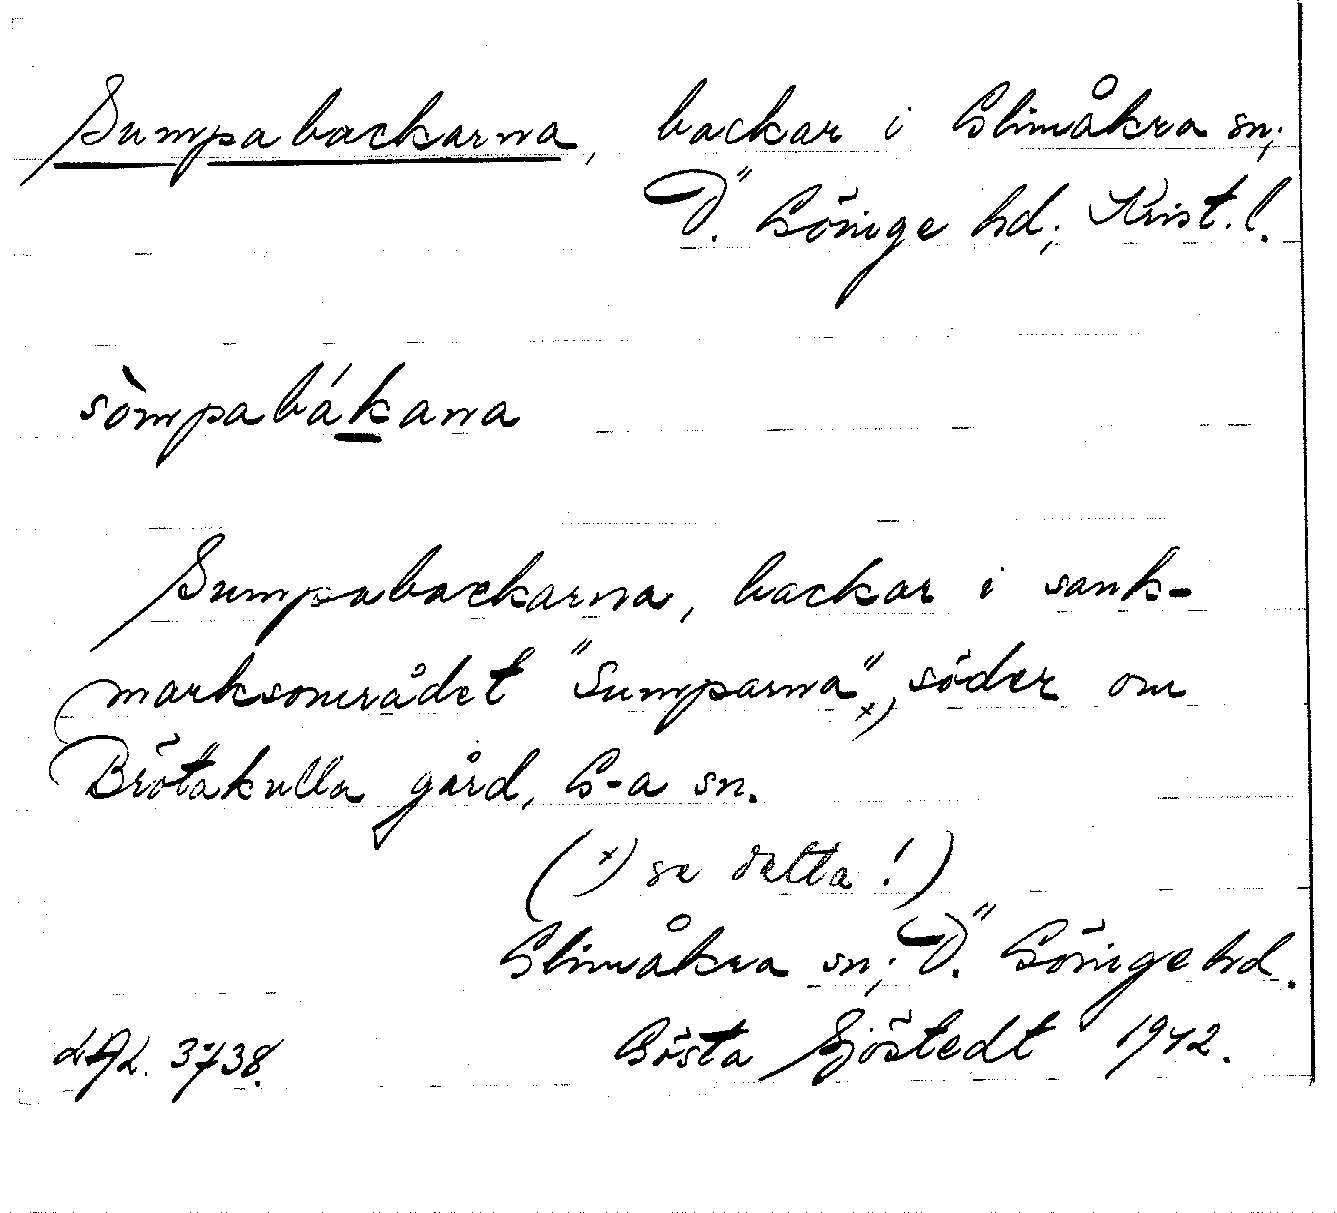 Sumpabackarna, backar i Glimåkra sn;
Ö. Göinge hd; Krist. l.
sòmpabákana
Sumpabackarna, backar i sank-
marksområdet "Sumparna" x), söder om
Brötakulla gård, G-a sn.
(x) se detta!)
Glimåkra sn; Ö. Göinge hd.
LAL. 3738. Gösta Sjöstedt 1942.